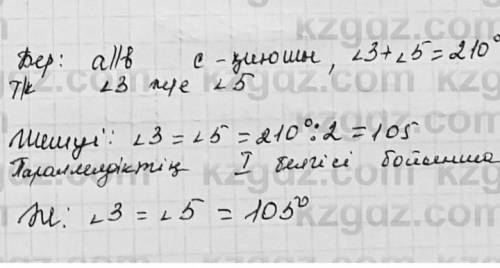 Бер: a||b c - қиюшы, ∠3+∠5=210°
Т/к ∠3 және ∠5
Шешуі: ∠3=∠5=210°:2=105
Параллелдіктің I белгісі бойынша
Ж: ∠3=∠5=105°
kzgaz.com